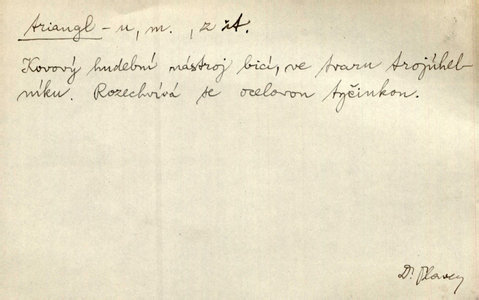 triangl -u, m., z it.
Kovový hudební nástroj bicí, ve tvaru trojúhel-
níku. Rozechvívá se ocelovou tyčinkou.
Dr.